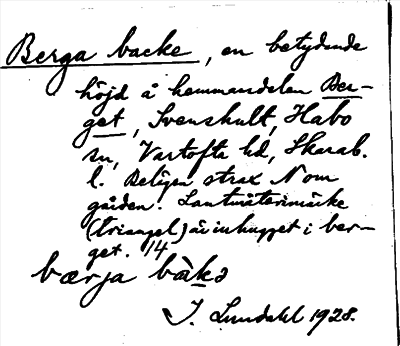 Berga backe, en betydande
höjd å hemmansdelen Ber-
get, Svenshult, Habo
sn, Vartofta hd, Skarab.
l. Belägen strax N om
gården. Lantmäterimärke
(triangel) är inhugget i ber-
get. 14
bærja bàkə
J. Lundahl 1928.